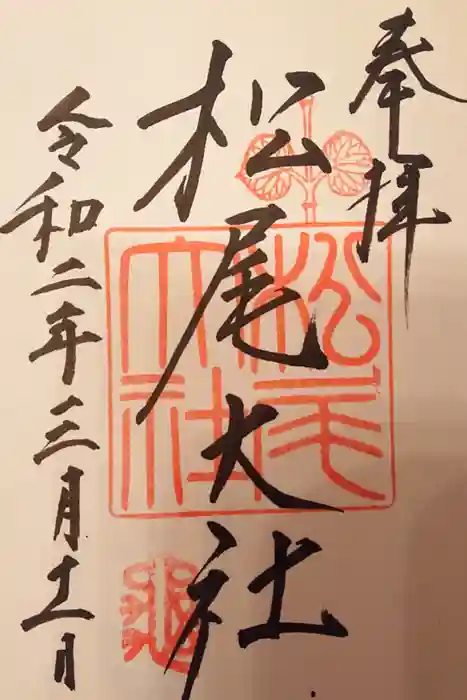 奉拝
松尾大社
令和二年三月十二日
松尾
大社